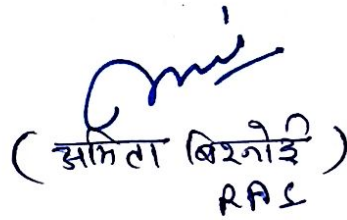 ( अमिता बिश्नोई )
RAS